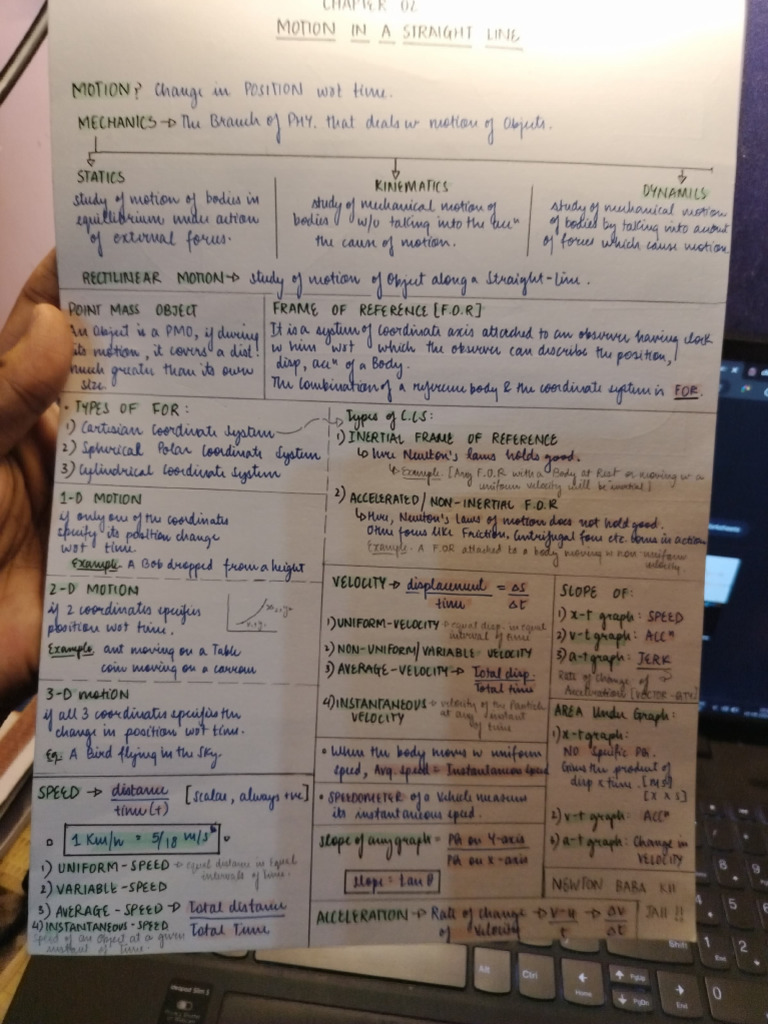 CHAPTER 02
MOTION IN A STRAIGHT LINE
MOTION? Change in POSITION wrt time.
MECHANICS → The Branch of PHY. that deals w motion of Objects.
STATICS
study of motion of bodies in
equilibrium under action
of external forces.
KINEMATICS
study of mechanical motion of
bodies w/o taking into the accⁿ
the cause of motion.
DYNAMICS
study of mechanical motion
of bodies by taking into account
of forces which cause motion
RECTILINEAR MOTION → study of motion of Object along a Straight-line.
POINT MASS OBJECT
An Object is a PMO, if during
its motion, it covers a dist.
much greater than its own
size.
FRAME OF REFERENCE [F.O.R]
It is a system of coordinate axis attached to an observer having clock
w him wrt which the observer can describe the position,
disp, accⁿ of a Body.
The Combination of a reference body & the coordinate system is FOR.
• TYPES OF FOR:
1) Cartesian Coordinate System
2) Spherical Polar Coordinate System
3) Cylindrical Coordinate System
Types of C.C.S:
1) INERTIAL FRAME OF REFERENCE
↳ Here Newton's laws holds good.
↳ Example. [Any F.O.R with a Body at Rest or moving w a
uniform velocity will be inertial]
2) ACCELERATED/NON-INERTIAL F.O.R
↳ Here, Newton's Laws of motion does not hold good.
Other forces like Friction, Centrifugal force etc. comes in action
Example. A F.OR attached to a body moving w non uniform
velocity.
1-D MOTION
if only one of the coordinates
specify its position change
wrt time.
Example. A Bob dropped from a height
2-D MOTION
if 2 coordinates specifies
position wrt time.
Example. ant moving on a Table
coin moving on a carrom
3-D MOTION
if all 3 coordinates specifies the
change in position wrt time.
Eg. A Bird flying in the Sky.
VELOCITY → displacement/time = ΔS/Δt
1) UNIFORM-VELOCITY → equal disp. in equal
interval of time
2) NON-UNIFORM/VARIABLE VELOCITY
3) AVERAGE-VELOCITY → Total disp./Total time
4) INSTANTANEOUS → velocity of the Particle
VELOCITY at any instant
of time
SLOPE OF:
1) x-t graph: SPEED
2) v-t graph: ACCⁿ
3) a-t graph: JERK
Rate of Change of
Acceleration [VECTOR-QTY]
AREA Under Graph:
1) x-t graph:
NO Specific PQ.
Gives the product of
disp x time. [MS]
[X x S]
2) v-t graph: ACCⁿ
3) a-t graph: Change in
VELOCITY
• When the body moves w uniform
speed, Avg. speed = Instantaneous speed
• SPEEDOMETER of a Vehicle measures
its instantaneous speed.
SPEED → distance/time(t) [scalar, always +ve]
1 Km/h = 5/18 m/s
1) UNIFORM-SPEED → equal distance in Equal
intervals of time.
2) VARIABLE-SPEED
3) AVERAGE-SPEED → Total distance/Total Time
4) INSTANTANEOUS-SPEED
Speed of an Object at a given
instant of time.
slope of any graph = PQ on Y-axis/PQ on X-axis
slope = tan θ
ACCELERATION → Rate of change of Velocity → v-u/t → Δv/Δt
NEWTON BABA KII
JAII !!